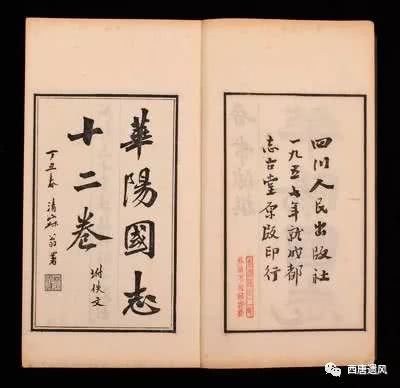 華陽國志
十二卷 坿佚文
丁丑春 清寂翁署
四川人民出版社
一九五七年就成都
志古堂原版印行
西唐遗风